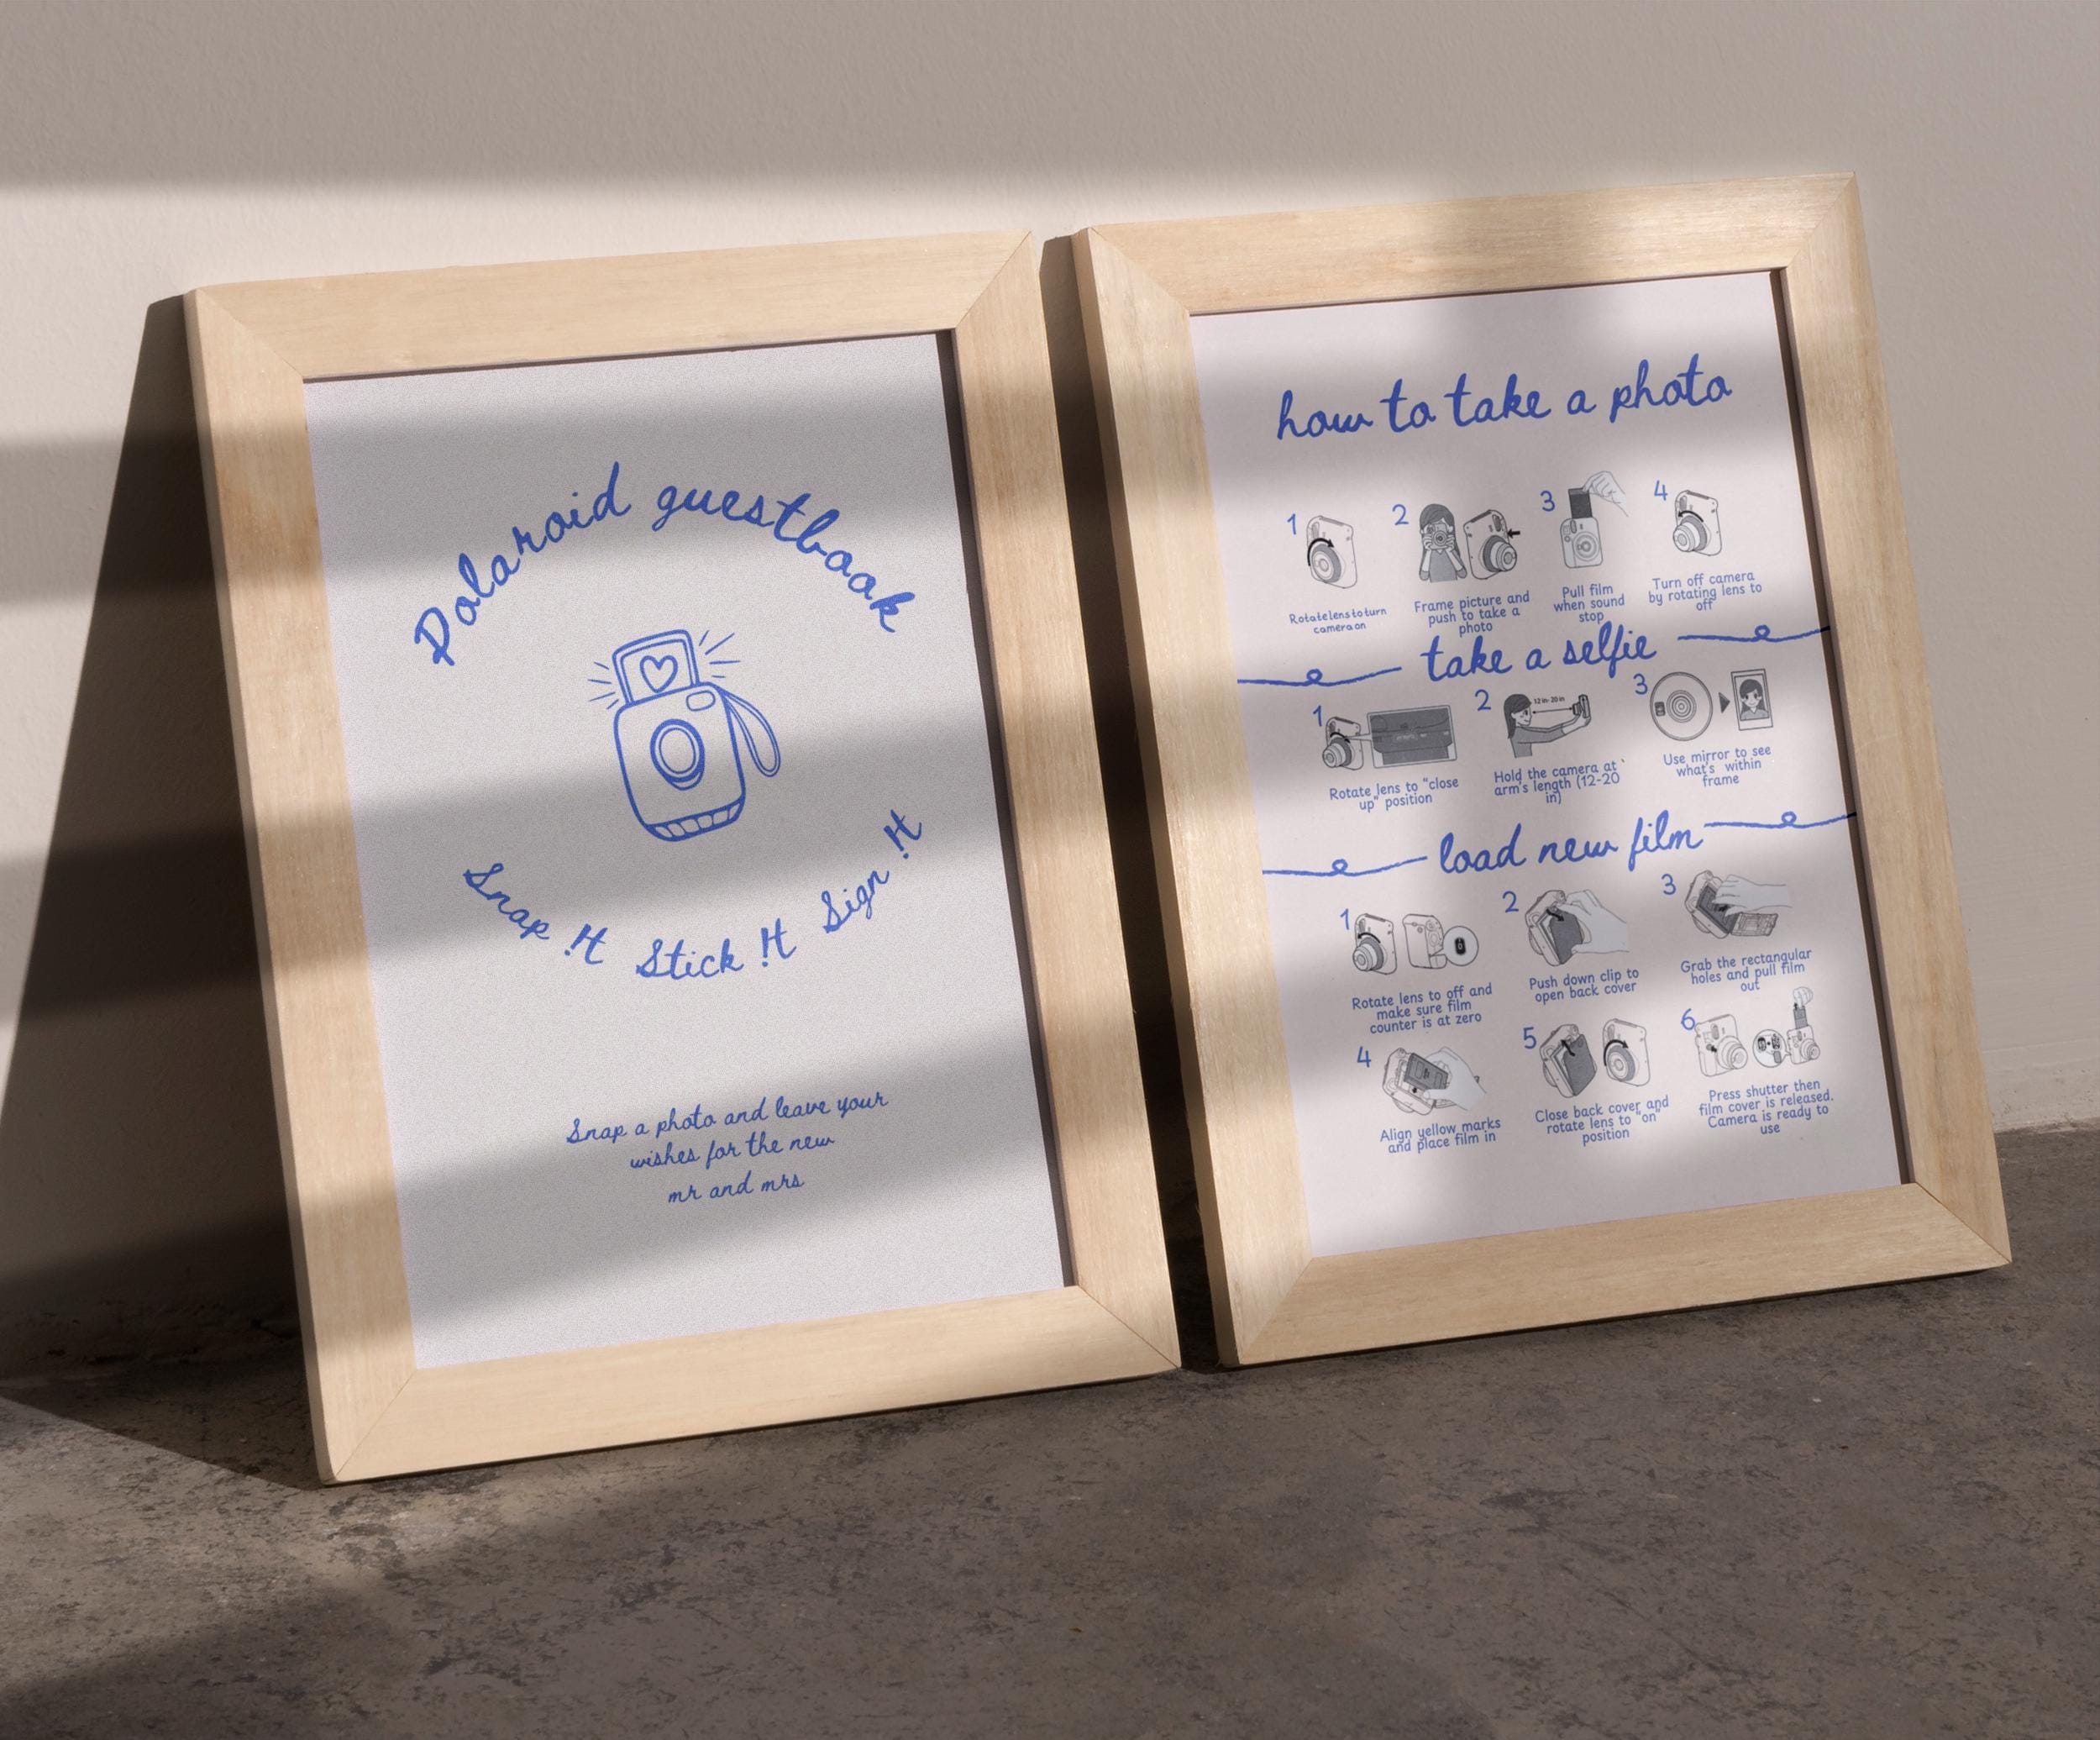 Polaroid guestbook
Snap It Stick It Sign It
Snap a photo and leave your
wishes for the new
mr and mrs
how to take a photo
1
Rotate lens to turn
camera on
2
Frame picture and
push to take a
photo
3
Pull film
when sound
stop
4
Turn off camera
by rotating lens to
off
take a selfie
1
Rotate lens to "close
up" position
2
12 in - 20 in
Hold the camera at `
arm's length (12-20
in)
3
Use mirror to see
what's within
frame
load new film
1
Rotate lens to off and
make sure film
counter is at zero
2
Push down clip to
open back cover
3
Grab the rectangular
holes and pull film
out
4
Align yellow marks
and place film in
5
Close back cover and
rotate lens to "on"
position
6
Press shutter then
film cover is released.
Camera is ready to
use